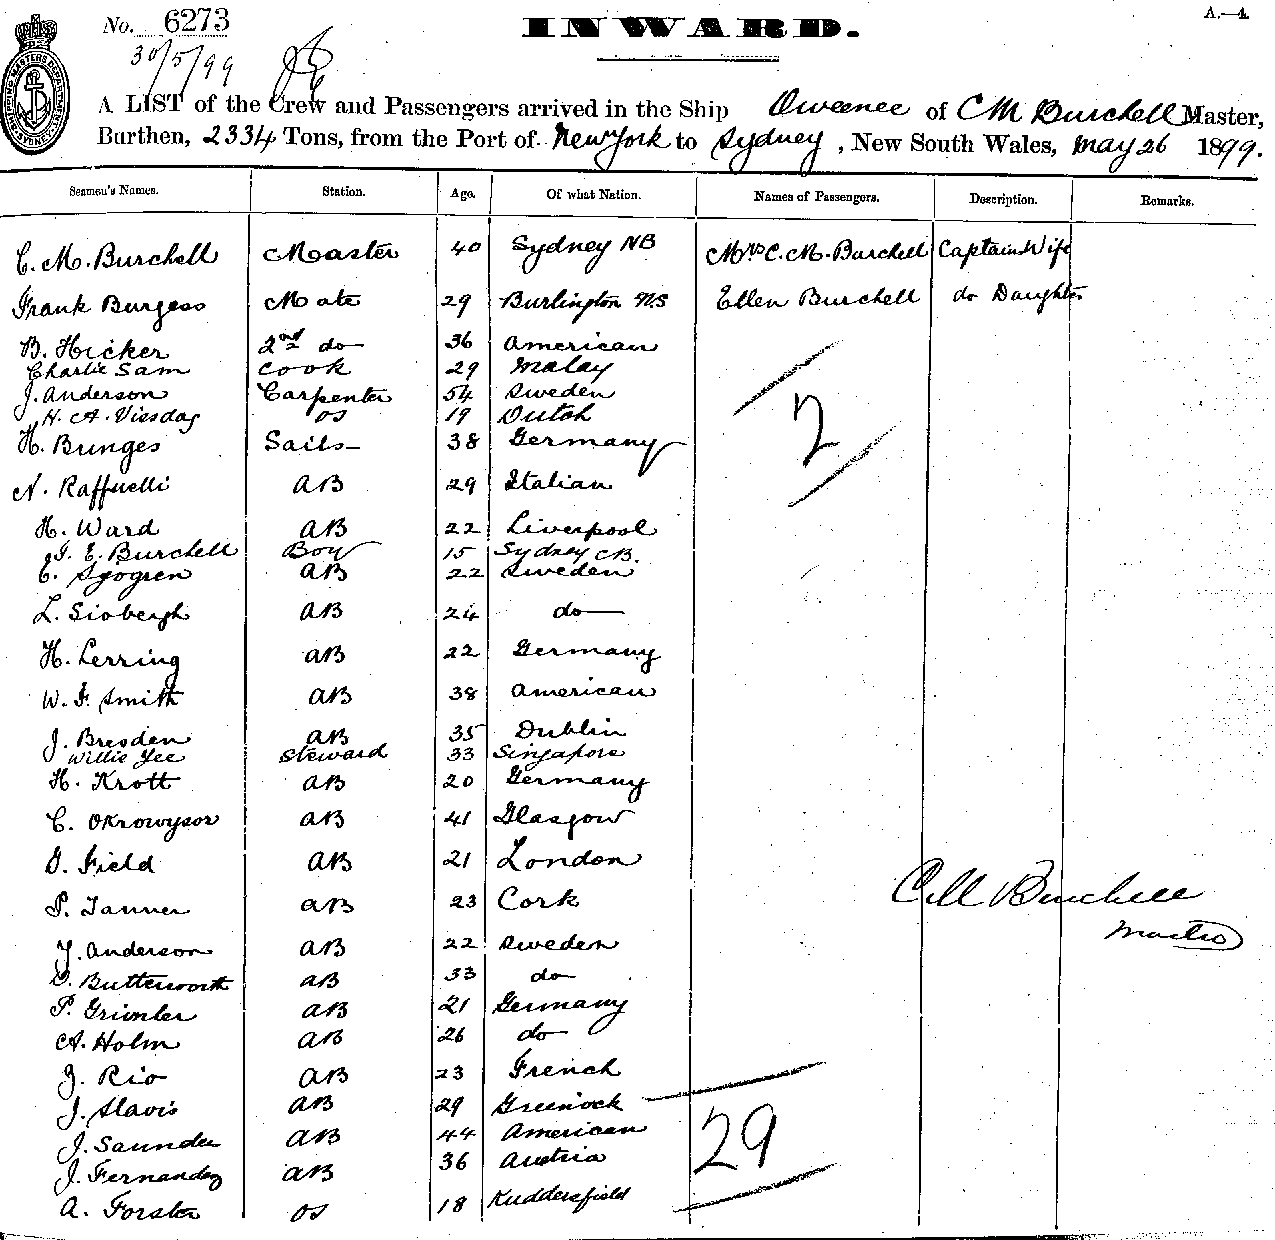 No. 6273
INWARD.
A.—4.
30/5/99
A LIST of the Crew and Passengers arrived in the Ship Oweenee of C M Burchell Master,
Burthen, 2334 Tons, from the Port of New York to Sydney, New South Wales, May 26 1899.
Seamen's Names. Station. Age. Of what Nation. Names of Passengers. Description. Remarks.
C. M. Burchell Master 40 Sydney NB Mrs C. M. Burchell Captains Wife
Frank Burgess Mate 29 Burlington NS Ellen Burchell do Daughter
B. Hicker 2nd do 36 American
Charlie Sam Cook 29 Malay
J. Anderson Carpenter 54 Sweden
H. A. Viesdag OS 19 Dutch
2
H. Brunges Sails 38 Germany
N. Raffuelli AB 29 Italian
H. Ward AB 22 Liverpool
J. E. Burchell Boy 15 Sydney CB.
C. Sjogren AB 22 Sweden
L. Siobergh AB 24 do
H. Lerring AB 22 Germany
W. F. Smith AB 38 American
J. Bresden AB 35 Dublin
Willie Yee Steward 33 Singapore
H. Krott AB 20 Germany
C. Okrowysor AB 41 Glasgow
D. Field AB 21 London
P. Tanner AB 23 Cork
C M Burchell
Master
J. Anderson AB 22 Sweden
D. Butterworth AB 33 do
P. Grimler AB 21 Germany
A. Holm AB 26 do
J. Rio AB 23 French
J. Slavis AB 29 Greenock
J. Saunders AB 44 American
29
J. Fernandez AB 36 Austria
A. Forster OS 18 Huddersfield